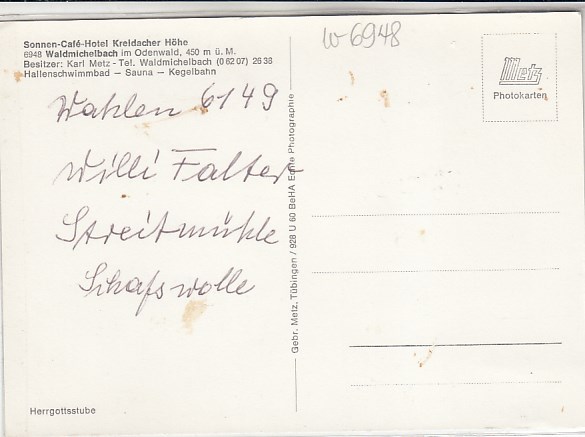 Sonnen-Café-Hotel Kreidacher Höhe
6948 Waldmichelbach im Odenwald, 450 m ü. M.
Besitzer: Karl Metz - Tel. Waldmichelbach (0 62 07) 26 38
Hallenschwimmbad – Sauna – Kegelbahn
w-6948
Metz
Photokarten
Wahlen 6149
Willi Falter
Streitmühle
Schafswolle
Gebr. Metz, Tübingen / 928 U 60 BeHA Echte Photographie
Herrgottsstube